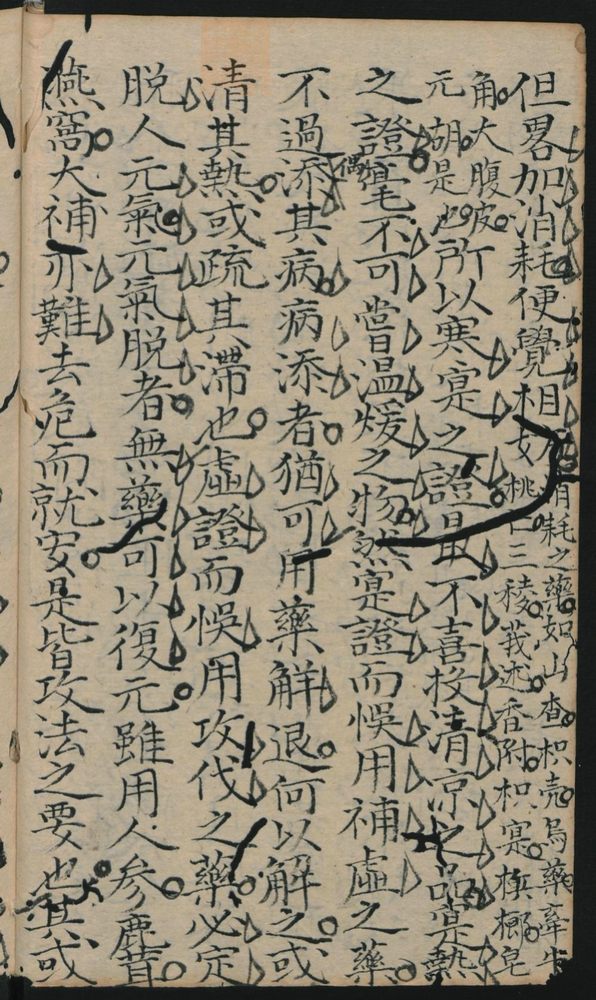 但畧加消耗便覺相安 消耗之藥如山查枳壳烏藥牽牛
桃仁三稜莪述香附枳寔檳榔皂
角大腹皮
元胡是也 所以寒寔之證最不喜投清凉之品寔熱
之證毫不可嘗温煖之物然寔證而悞用補虛之藥
偶
不過添其病病添者猶可用藥解退何以解之或
清其熱或疏其滯也虛證而悞用攻伐之藥必定
脱人元氣元氣脱者無藥可以復元雖用人参鹿茸
燕窩大補亦難去危而就安是皆攻法之要也其或